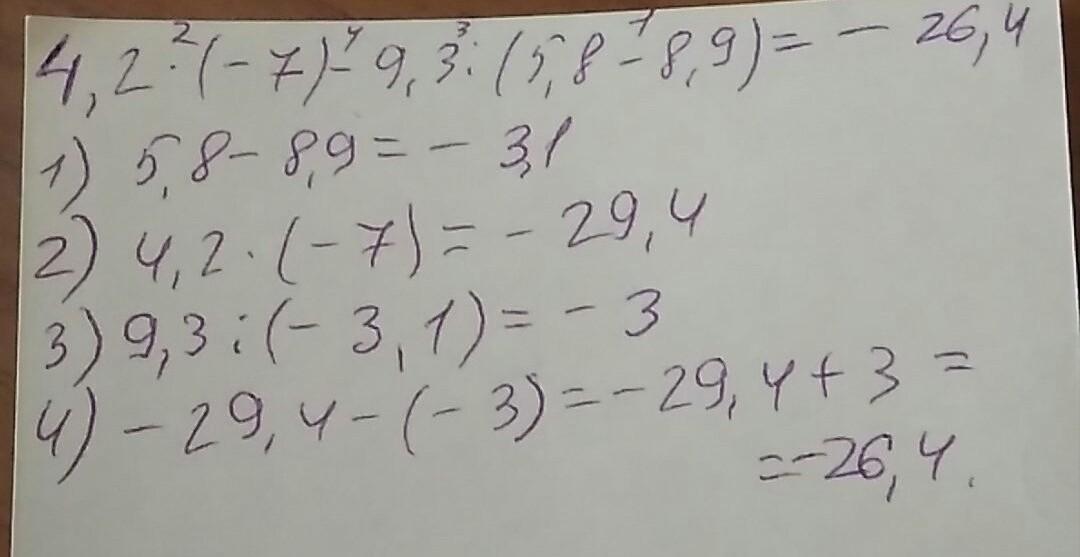 4,2 · (-7) - 9,3 : (5,8 - 8,9) = - 26,4
1) 5,8 - 8,9 = - 3,1
2) 4,2 · (-7) = - 29,4
3) 9,3 : (- 3,1) = - 3
4) - 29,4 - (- 3) = - 29,4 + 3 =
= -26,4.